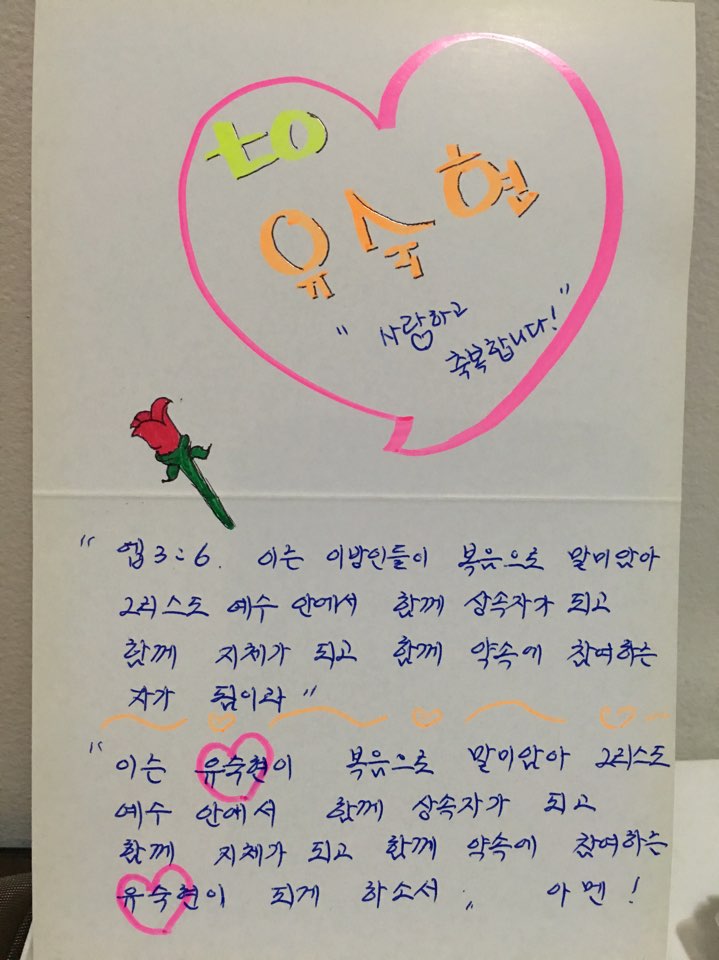 to
유숙현
"사랑하고
축복합니다!"
"엡3:6. 이는 이방인들이 복음으로 말미암아
그리스도 예수 안에서 함께 상속자가 되고
함께 지체가 되고 함께 약속에 참여하는
자가 됨이라"
"이는 유숙현이 복음으로 말미암아 그리스도
예수 안에서 함께 상속자가 되고
함께 지체가 되고 함께 약속에 참여하는
유숙현이 되게 하소서" 아멘!